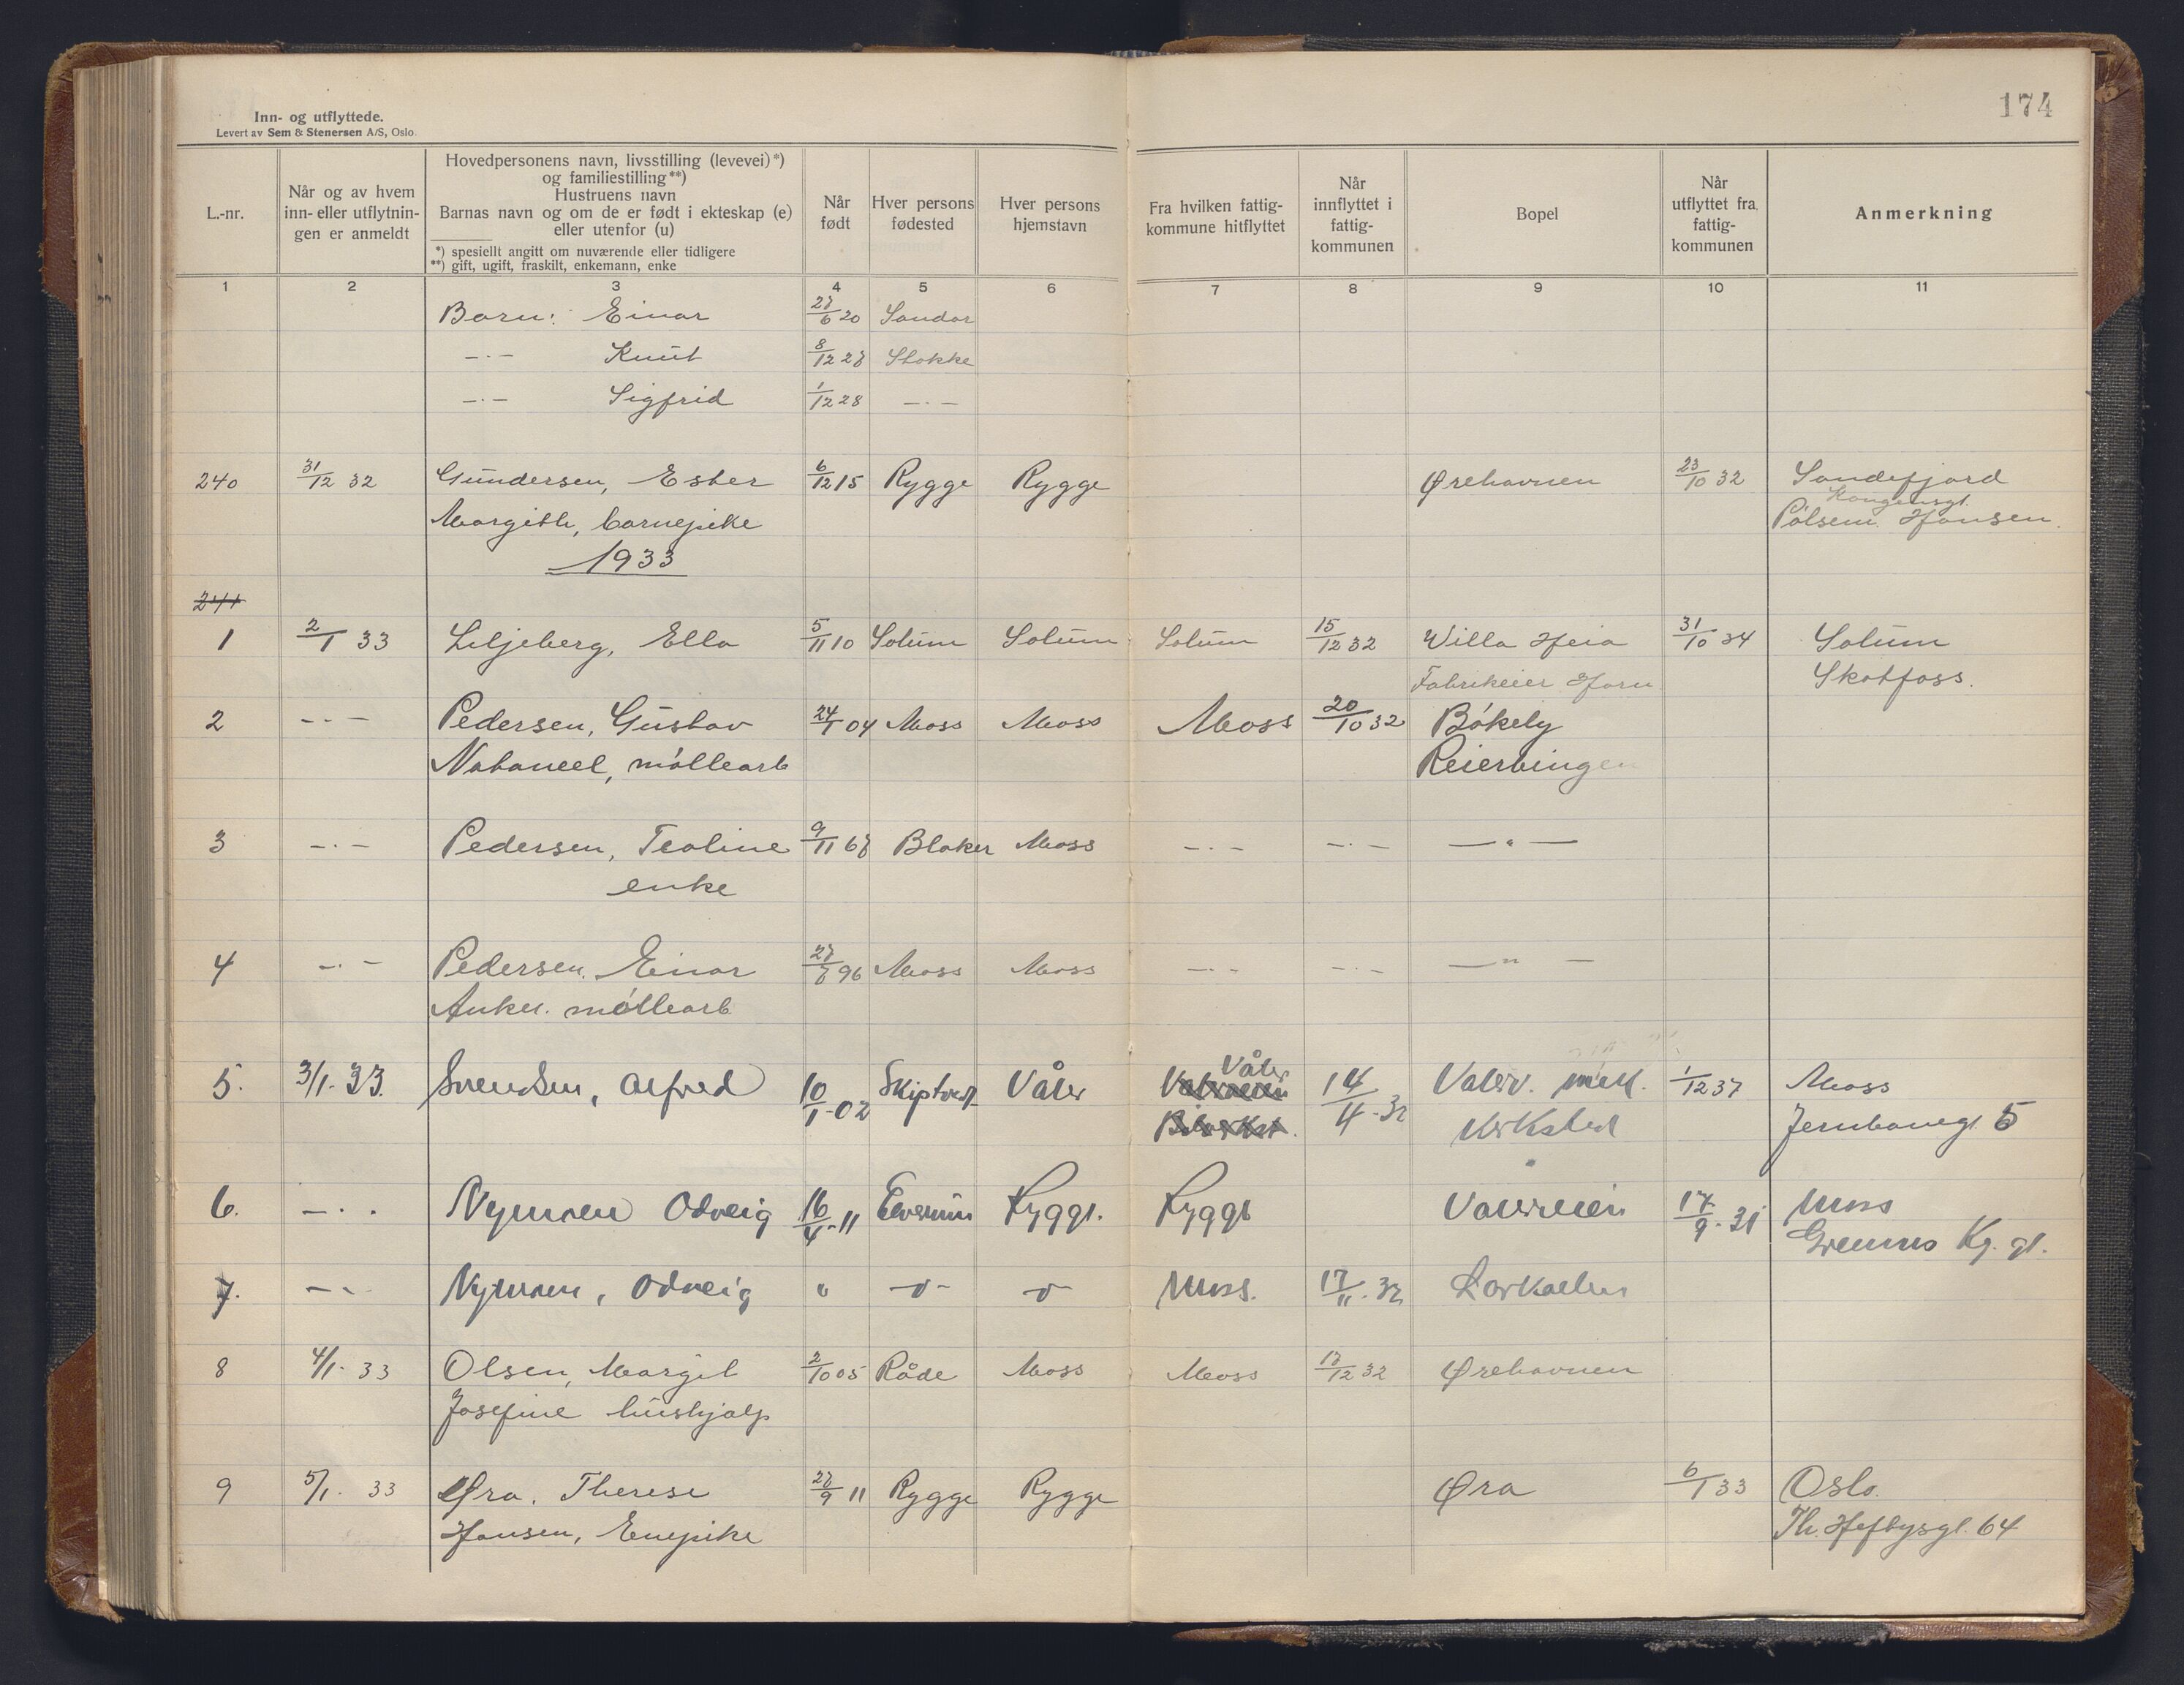 174
Inn- og utflyttede.
Levert av Sem & Stenersen A/S, Oslo.
L.-nr.
Når og av hvem inn- eller utflytnin- gen er anmeldt
Hovedpersonens navn, livsstilling (levevei)*)
og familiestilling**)
Hustruens navn
Barnas navn og om de er født i ekteskap (e)
eller utenfor (u)
*) spesiellt angitt om nuværende eller tidligere
**) gift, ugift, fraskilt, enkemann, enke
Når født
Hver persons fødested
Hver persons hjemstavn
Fra hvilken fattig- kommune hitflyttet
Når innflyttet i fattig- kommunen
Bopel
Når utflyttet fra fattig- kommunen
Anmerkning
1 2 3 4 5 6 7 8 9 10 11
Barn: Einar 27/6 20 Sandar
-·- Knut 8/12 27 Stokke
-·- Sigfrid 1/12 28 -·-
240 31/12 32 Gundersen, Ester 6/12 15 Rygge Rygge Ørehavnen 23/10 32 Sandefjord
Kongensgt.
Margith, barnepike Pølsem. Hansen.
1933
241
1 2/1 33 Liljeberg, Ella 5/11 10 Solum Solum Solum 15/12 32 Willa Heia 31/10 34 Solum
Fabrikeier Horn Skotfoss.
2 -·- Pedersen, Gustav 24/1 04 Moss Moss Moss 20/10 32 Bøkely
Nataneel, møllearb Reiertvingen
3 -·- Pedersen, Teoline 9/11 67 Blaker Moss -·- -·- -"-
enke
4 -·- Pedersen, Einar 27/7 96 Moss Moss -·- -·- -"-
Anker. møllearb
5. 3/1. 33. Svendsen, Alfred 10/1-02 Skiptvet Våler Våler 14/4-32 Valerv. 1/12 37 Moss
Jernbanegt. 5
6. -·- Nymoen Odveig 16/4-11 Elverum Rygge. Rygge Valerveien 17/9-31 Moss
Kg. gt.
7. -·- Nymoen, Odveig " -o- -o- Moss. 17/11-32
8 4/1. 33 Olsen, Margit 2/10 05 Råde Moss Moss 17/12 32 Ørehavnen
Josefine hushjalp
9 5/1. 33 Øra, Therese 27/9 11 Rygge Rygge Øra 6/1 33 Oslo.
Hansen, Enepike Th. Heftysgt. 64